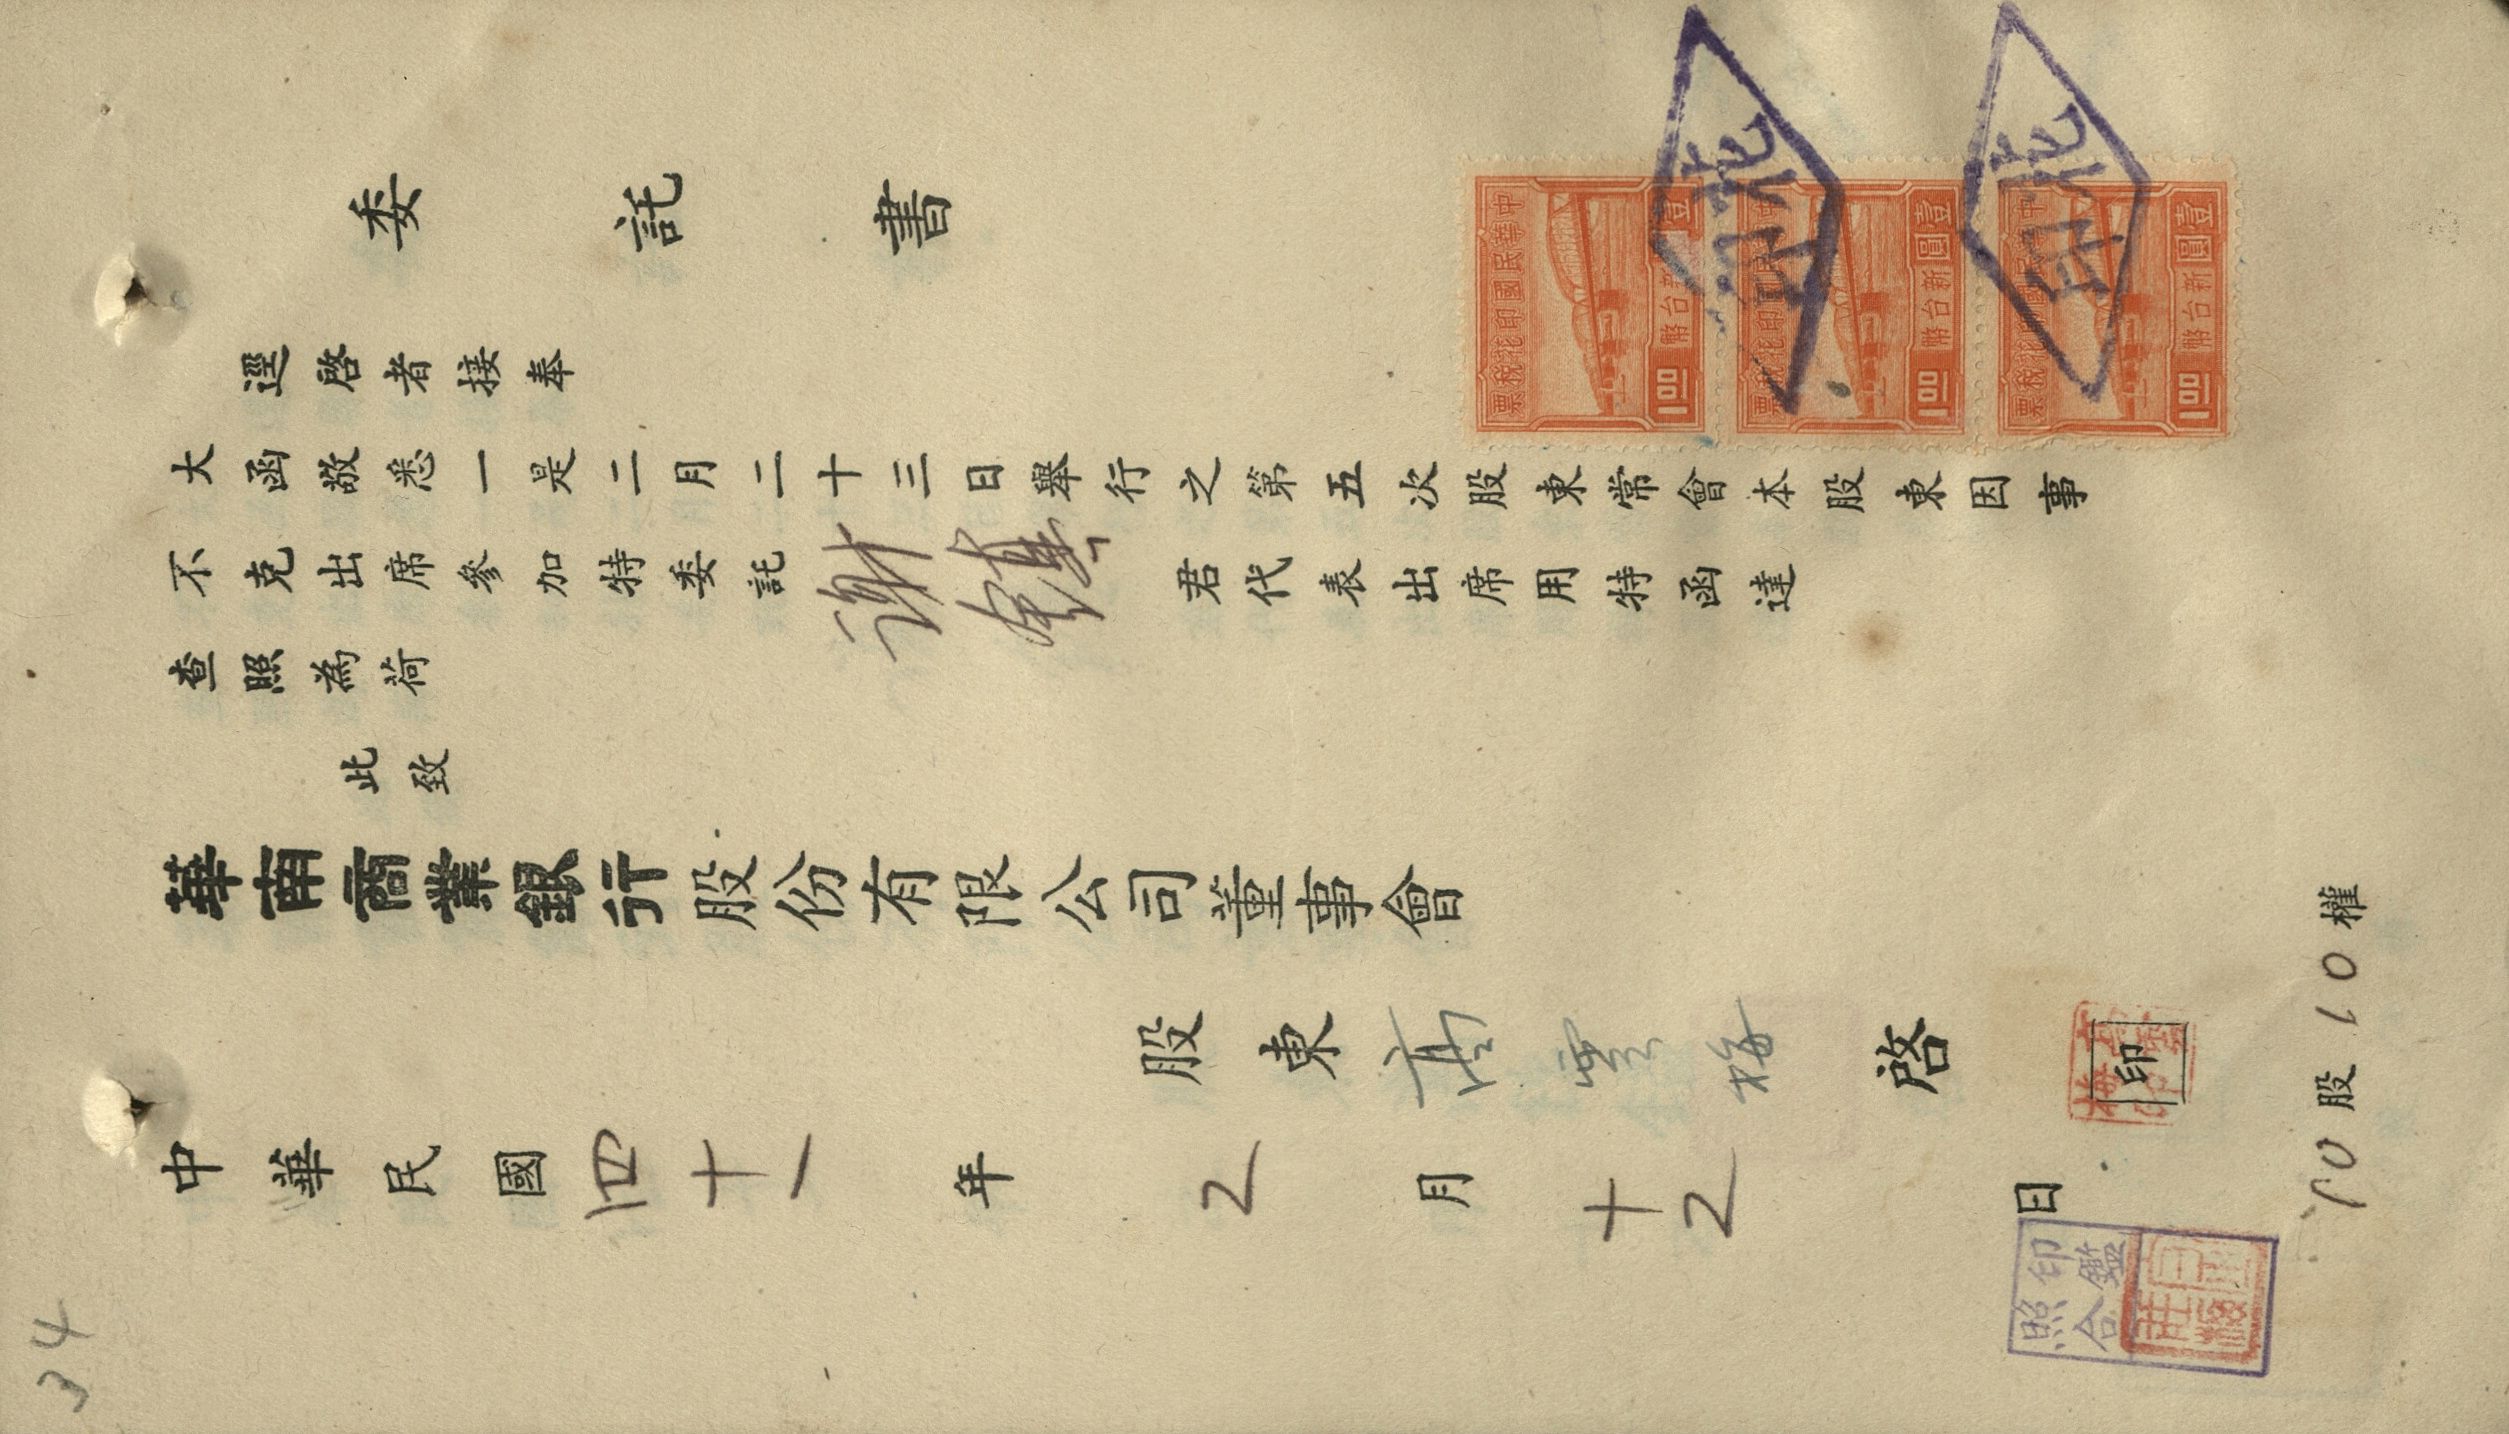 委託書
逕啓者接奉
大函敬悉一是二月二十三日舉行之第五次股東常會本股東因事
不克出席參加特委託謝鎮君代表出席用特函達
查照為荷
此致
華南商業銀行股份有限公司董事會
股東高雲梅啓
印
中華民國四十一年2月十2日
10股10權
34
中華民國印花稅票
新台幣壹圓
1.00
中華民國印花稅票
新台幣壹圓
1.00
中華民國印花稅票
新台幣壹圓
1.00
印鑑
照合